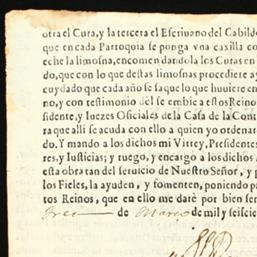 otra el Cura, y la tercera el Escriuano del Cabild
que en cada Parroquia se ponga vna casilla co
eche la limosna, encomendandola los Curas en
do, que con lo que destas limosnas procediere ay
cuydado que cada año se saque lo que huuiere en
no, y con testimonio dèl se embie a estos Reino
sidente, y Iuezes Oficiales de la Casa de la Cont
ra que alli se acuda con ello a quien yo ordenar
do. Y mando a los dichos mi Virrey, Presidentes
res, y Iusticias; y ruego, y encargo a los dichos
esta obra tan del seruicio de Nuestro Señor, y p
los Fieles, la ayuden, y fomenten, poniendo pa
tos Reinos, que en ello me darè por bien ser
Trece de Março de mil y seiscie